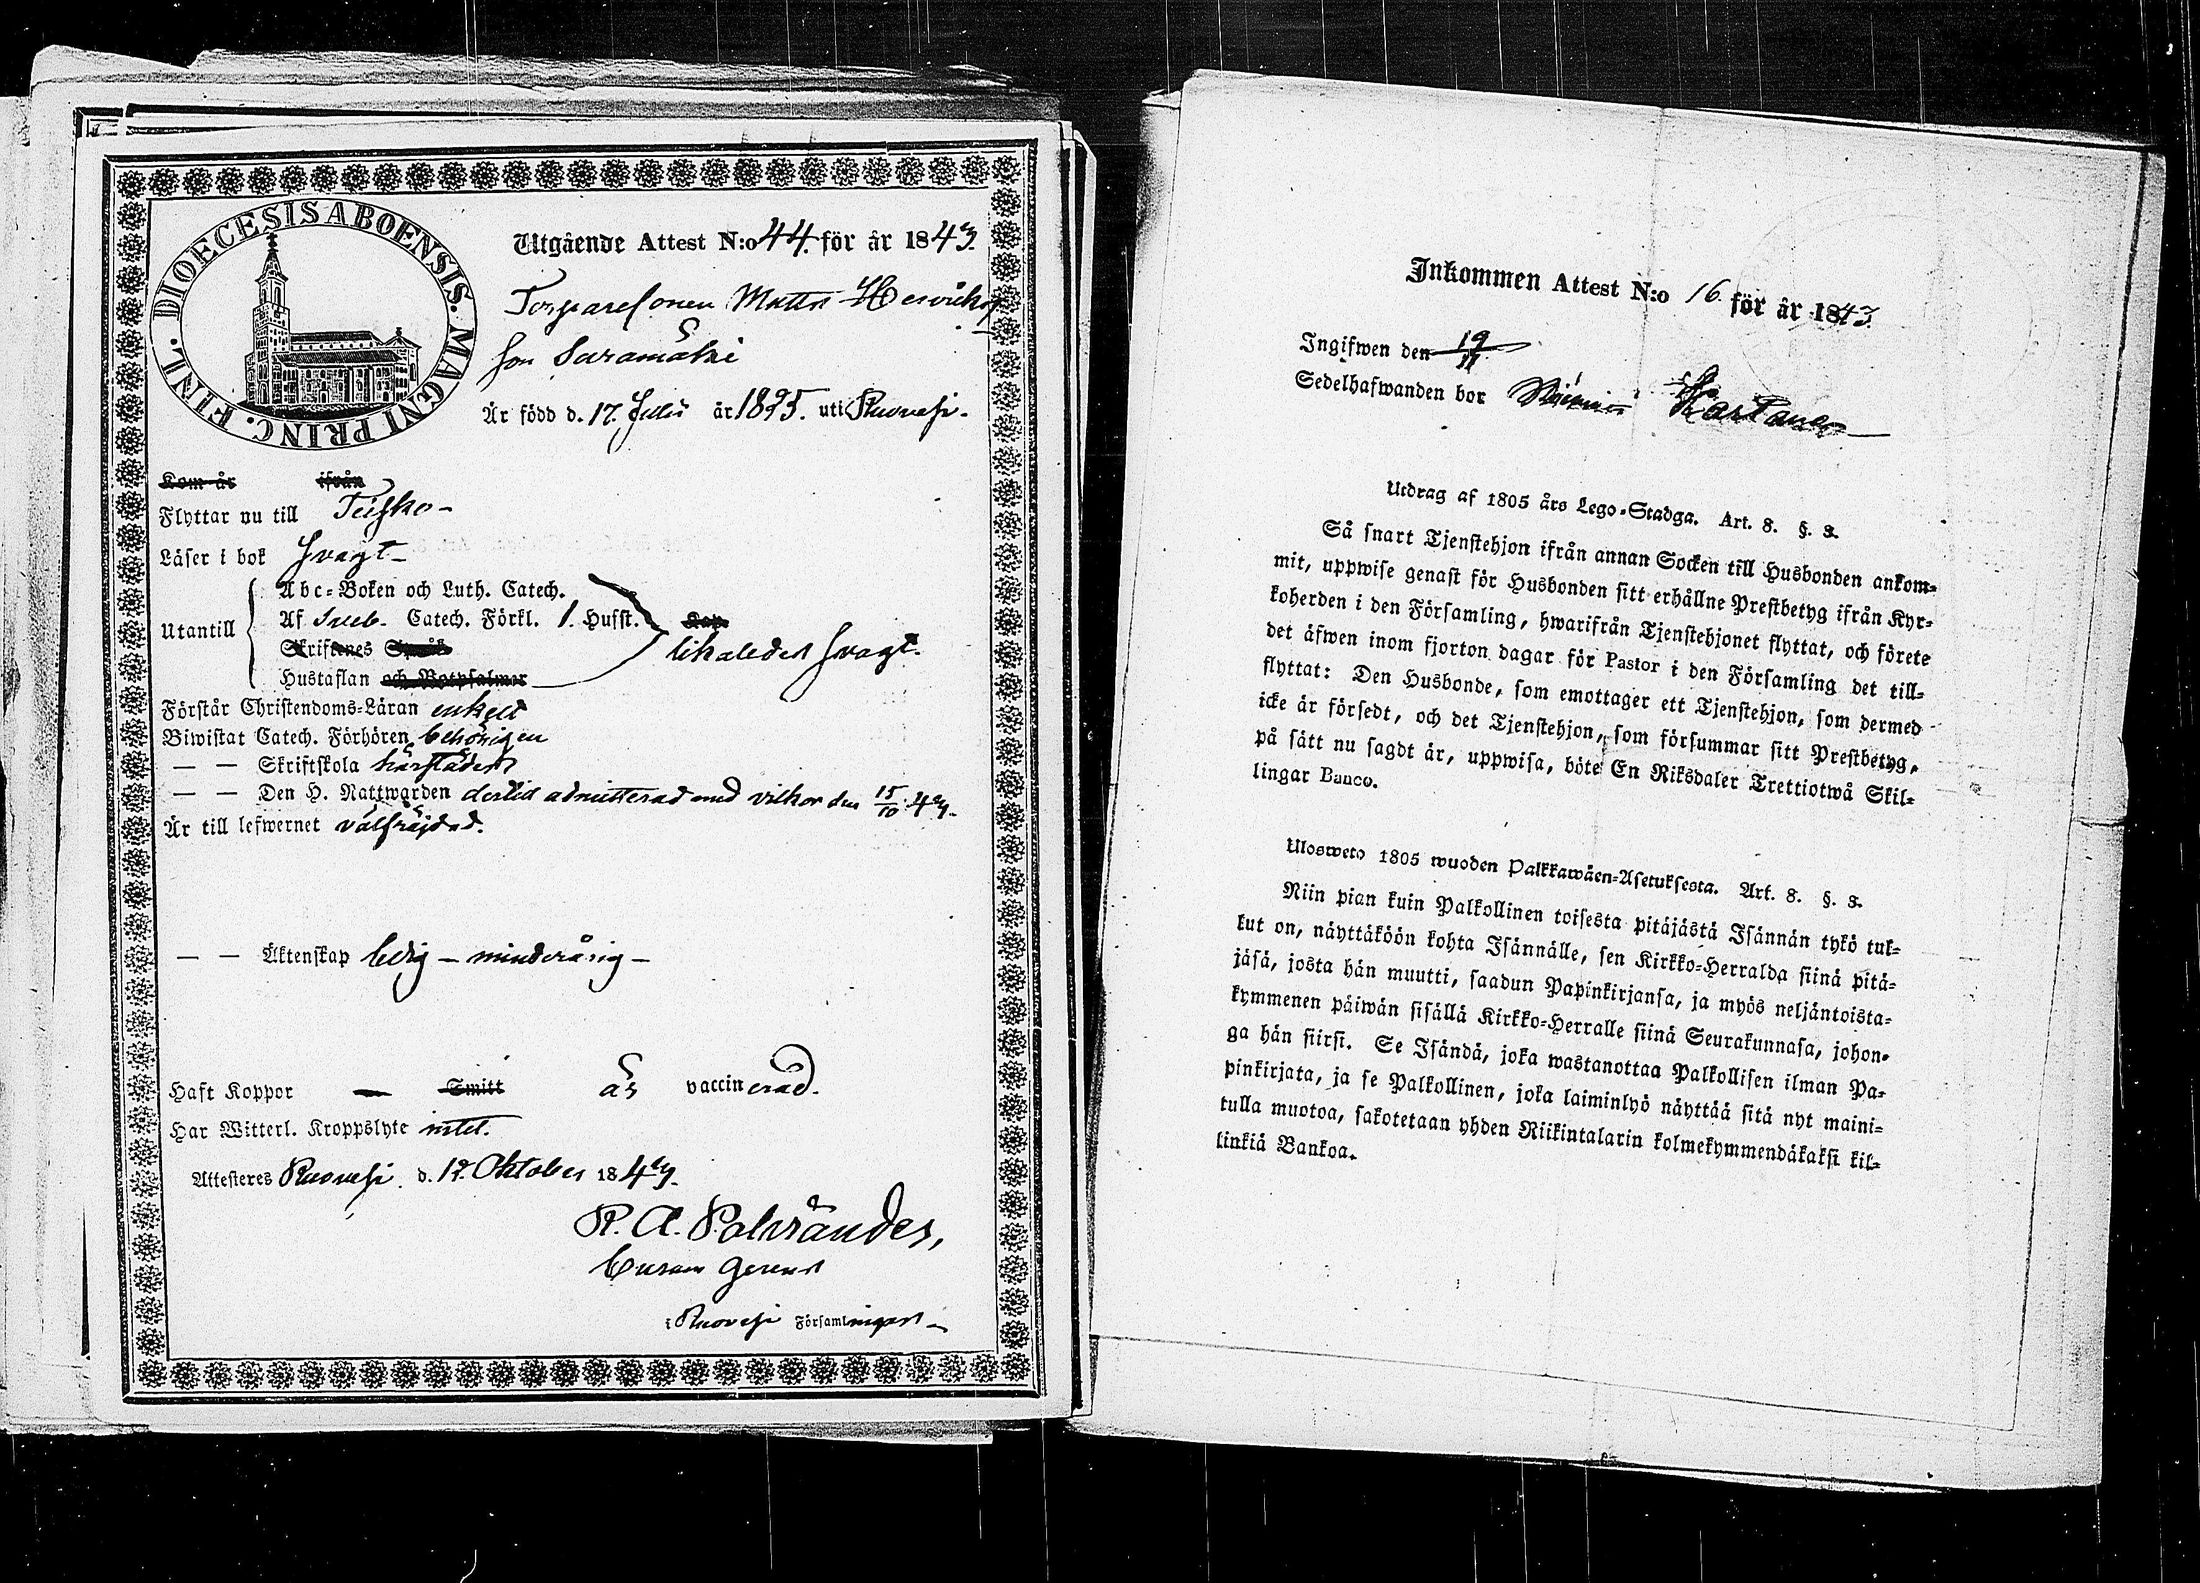 FINL. DIOECESIS ABOENSIS. MAGNI PRINC.
Utgående Attest N:o 44. för år 1843.
Torparesonen Matts Henrichs
son Saramäki
Är född d. 17. Julii år 1825. uti Ruovesi.
Kom år ifrån
Flyttar nu till Teisko
Läser i bok svagt
Utantill
Abc-Boken och Luth. Catech.
Af Sveb. Catech. Förkl. 1. Husst. Kap.
Skriftenes Språk
likaledes svagt.
Hustaflan och Botpsalmer
Förstår Christendoms-Läran enkelt
Biwistat Catech. Förhören behörigen
— — Skriftskola härstädes
— — Den H. Nattwarden dertid admitterad med vilkor den 15/10 43.
Är till lefwernet välfräjdad.
— — Äktenskap ledig — minderårig —
Haft Koppor — Smitt är vaccinerad.
Har Witterl. Kroppslyte intet.
Attesteres Ruovesi d. 12. Oktober 1843.
R. A. Polviander,
Curam Gerens
i Ruovesi Församlingar
Inkommen Attest N:o 16. för år 1843.
Ingifwen den 19/11
Sedelhafwanden bor Kartano
Utdrag af 1805 års Lego-Stadga. Art. 8. §. 3.
Så snart Tjenstehjon ifrån annan Socken till Husbonden ankom-
mit, uppwise genast för Husbonden sitt erhållne Prestbetyg ifrån Kyr-
koherden i den Församling, hwarifrån Tjenstehjonet flyttat, och förete
det äfwen inom fjorton dagar för Pastor i den Församling det till-
flyttat: Den Husbonde, som emottager ett Tjenstehjon, som dermed
icke är försedt, och det Tjenstehjon, som försummar sitt Prestbetyg,
på sätt nu sagdt är, uppwisa, böte En Riksdaler Trettiotwå Skil-
lingar Banco.
Ulosweto 1805 wuoden Palkkawäen-Asetuksesta. Art. 8. §. 3.
Niin pian kuin Palkollinen toisesta pitäjästä Isännän tykö tul-
kut on, näyttäköön kohta Isännälle, sen Kirkko-Herralda siinä pitä-
jäsä, josta hän muutti, saadun Papinkirjansa, ja myös neljäntoista-
kymmenen päiwän sisällä Kirkko-Herralle siinä Seurakunnasa, johon-
ga hän siirsi. Se Isändä, joka wastanottaa Palkollisen ilman Pa-
pinkirjata, ja se Palkollinen, joka laiminlyö näyttää sitä nyt maini-
tulla muotoa, sakotetaan yhden Riikintalarin kolmekymmendäkaksi kil-
linkiä Bankoa.